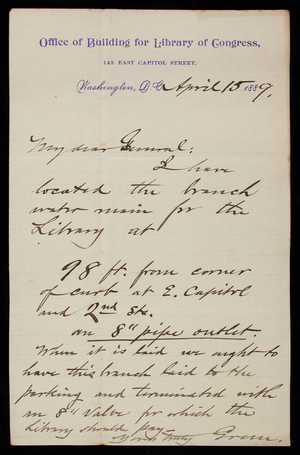 Office of Building for Library of Congress,
145 EAST CAPITOL STREET,
Washington, D.C. April 15 1889.
My dear General:
I have
located the branch
water main for the
Library at
98 ft. from corner
of curb at E. Capitol
and 2nd Sts.
an 8" pipe outlet.
When it is laid we ought to
have this branch laid to the
parking and terminated with
an 8" valve for which the
Library should pay—
Yours truly Green